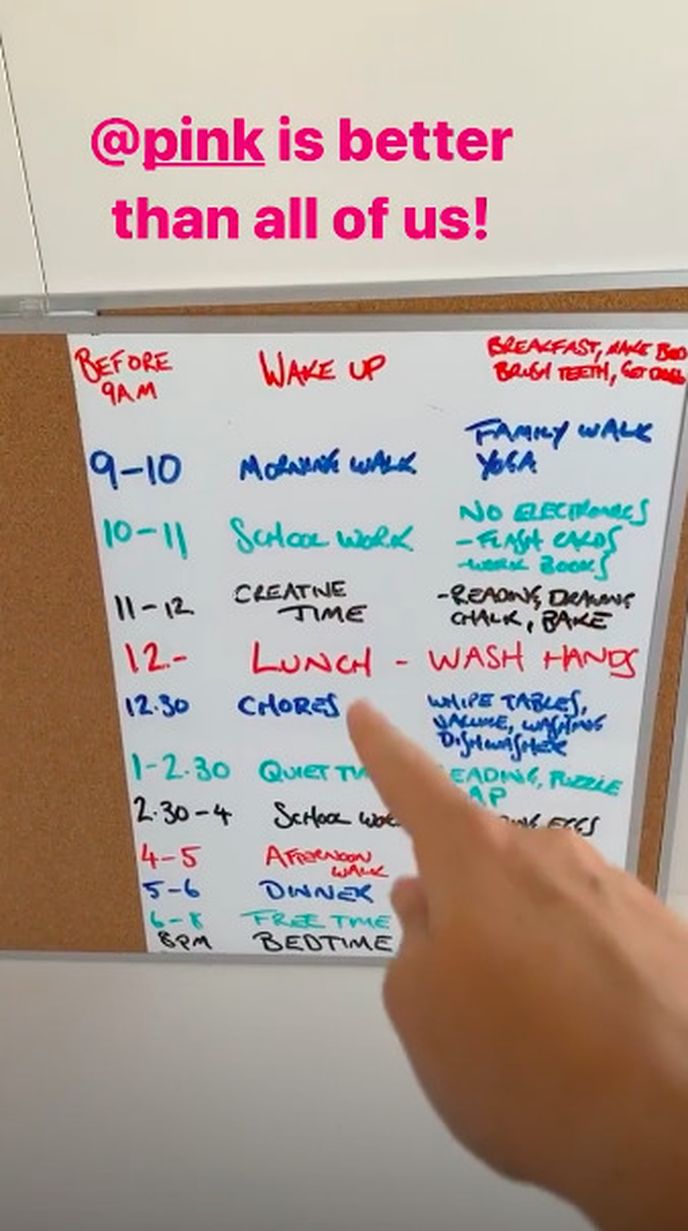 @pink is better
than all of us!
BEFORE
9AM
WAKE UP
BREAKFAST, MAKE BED
BRUSH TEETH, GET
9-10
MORNING WALK
FAMILY WALK
YOGA
10-11
SCHOOL WORK
NO ELECTRONICS
- FLASH CARDS
- WORK BOOKS
11-12
CREATIVE
TIME
- READING, DRAWING
CHALK, BAKE
12.- LUNCH - WASH HANDS
12.30
CHORES
WHIPE TABLES,
WASHING
DISHWASHER
1-2.30
QUIET
EADING, PUZZLE
AP
2.30-4
SCHOOL
EGGS
4-5
AFTERNOON
WALK
5-6
DINNER
6-8
FREE TIME
8PM
BEDTIME